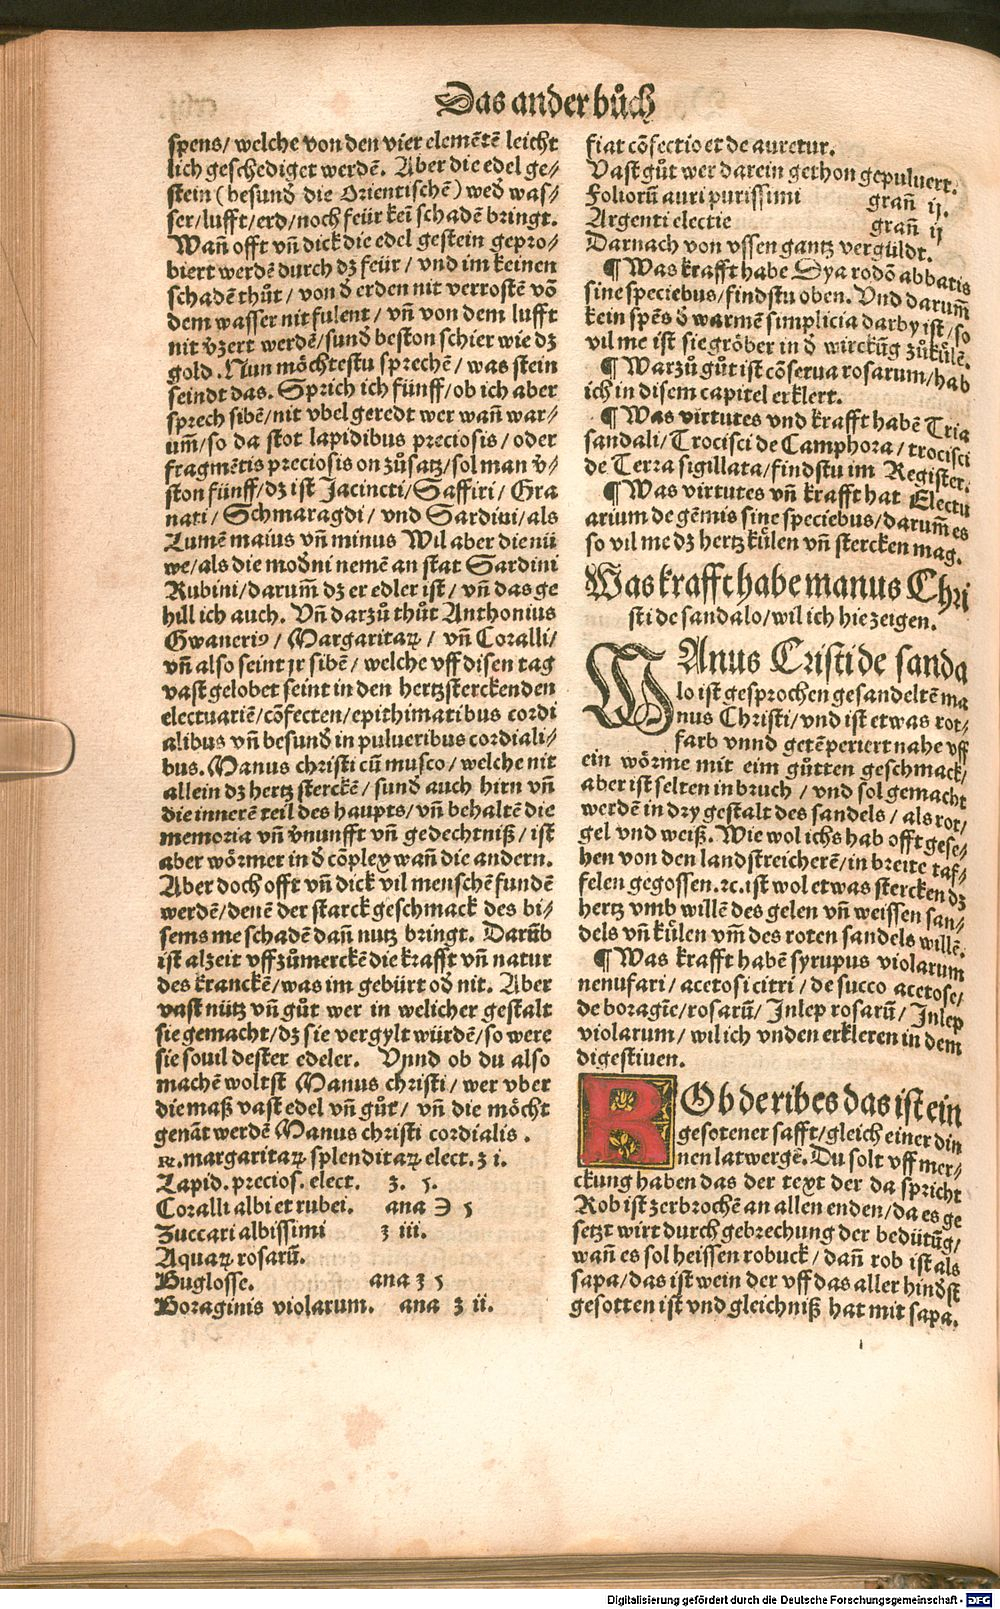 Das ander bůch
spens/ welche von den vier elemētē leicht
lich geschediget werdē. Aber die edel ge⸗
stein (besunď die Orientischē) weď was⸗
ser/lufft/erd/noch feür keī schadē bringt.
Wañ offt vñ dick die edel gestein gepro⸗
biert werdē durch dz feür/ vnd im keinen
schadē thůt/ von ď erden nit verrostē võ
dem wasser nit fulent/ vñ von dem lufft
nit v̄zert werdē/sunď beston schier wie dz
gold. Nun möchtestu sprechē/ was stein
seindt das. Sprich ich fünff/ob ich aber
sprech sibē/nit vbel geredt wer wañ war⸗
um̃/so da stot lapidibus preciosis/ oder
fragmētis preciosis on zůsatz/sol man v̄⸗
ston fünff/dz ist Jacincti/Saffiri/ Gra
nati/ Schmaragdi/ vnd Sardini/als
Lumē maius vñ minus Wil aber die nü
we/als die moďni nemē an stat Sardini
Rubini/darum̃ dz er edler ist/ vñ das ge
hill ich auch. Vñ darzů thůt Anthonius
Gwaneriꝰ/ Margaritaꝝ/ vñ Coralli/
vñ also seint jr sibē/ welche vff disen tag
vast gelobet seint in den hertzsterckenden
electuariē/cōfecten/epithimatibus cordi
alibus vñ besunď in pulueribus cordiali⸗
bus. Manus christi cū musco/ welche nit
allein dz hertz sterckē/ sunď auch hirn vñ
die innerē teil des haupts/ vñ behaltē die
memoria vñ v̄nunfft vñ gedechtniß/ ist
aber wörmer in ď cōplex wañ die andern.
Aber doch offt vñ dick vil menschē fundē
werdē/denē der starck geschmack des bi⸗
sems me schadē dañ nutz bringt. Darūb
ist alzeit vffzůmerckē die krafft vñ natur
des kranckē/was im gebürt oď nit. Aber
vast nütz vñ gůt wer in welicher gestalt
sie gemacht/dz sie vergylt würdē/so were
sie souil dester edeler. Vnnd ob du also
machē woltst Manus christi/ wer vber
die maß vast edel vñ gůt/ vñ die möcht
genāt werdē Manus christi cordialis.
℞.margaritaꝝ splenditaꝝ elect. ʒ i.
Lapid. precios. elect. ʒ. ꞩ.
Coralli albi et rubei. ana ℈ ꞩ
Zuccari albissimi ʒ iii.
Aquaꝝ rosarū.
Buglosse. ana ʒ ꞩ
Boraginis violarum. ana ʒ ii.
fiat cōfectio et de auretur.
Vast gůt wer darein gethon gepuluert.
Foliorū auri purissimi grañ ij.
Argenti electie grañ ij
Darnach von vssen gantz vergüldt.
¶ Was krafft habe Dya rodō abbatis
sine speciebus/findstu oben. Vnd darum̃
kein spēs ď warmē simplicia darby ist/so
vil me ist sie gröber in ď wirckūg zůkülē.
¶ Warzů gůt ist cōserua rosarum/hab
ich in disem capitel erklert.
¶ Was virtutes vnd krafft habē Tria
sandali/Trocisci de Camphora/ trocisci
de Terra sigillata/findstu im Register.
¶ Was virtutes vñ krafft hat Electu
arium de gēmis sine speciebus/darum̃ es
so vil me dz hertz külen vñ stercken mag.
Was krafft habe manus Chri
sti de sandalo/wil ich hie zeigen.
MAnus Cristi de sanda
lo ist gesprochen gesandeltē ma
nus Christi/vnd ist etwas rot⸗
farb vnnd getēperiert nahe vff
ein wörme mit eim gůtten geschmack/
aber ist selten in bruch/ vnd sol gemacht
werdē in dry gestalt des sandels/ als rot/
gel vnd weiß. Wie wol ichs hab offt gese⸗
hen von den landstreicherē/in breite taf⸗
felen gegossen.ꝛc. ist wol etwas stercken dz
hertz vmb willē des gelen vñ weissen san⸗
dels vñ külen vm̃ des roten sandels willē.
¶ Was krafft habē syrupus violarum
nenufari/ acetosi citri/ de succo acetose/
de boragīe/rosarū/ Julep rosarū/ Julep
violarum/ wil ich vnden erkleren in dem
digestiuen.
ROb de ribes das ist ein
gesotener safft/gleich einer din
nen latwergē. Du solt vff mer⸗
ckung haben das der text der da spricht
Rob ist zerbrochē an allen enden/da es ge
setzt wirt durch gebrechung der bedütūg/
wañ es sol heissen robuck/ dañ rob ist als
sapa/das ist wein der vff das aller hindst
gesotten ist vnd gleichniß hat mit sapa.
Digitalisierung gefördert durch die Deutsche Forschungsgemeinschaft - DFG